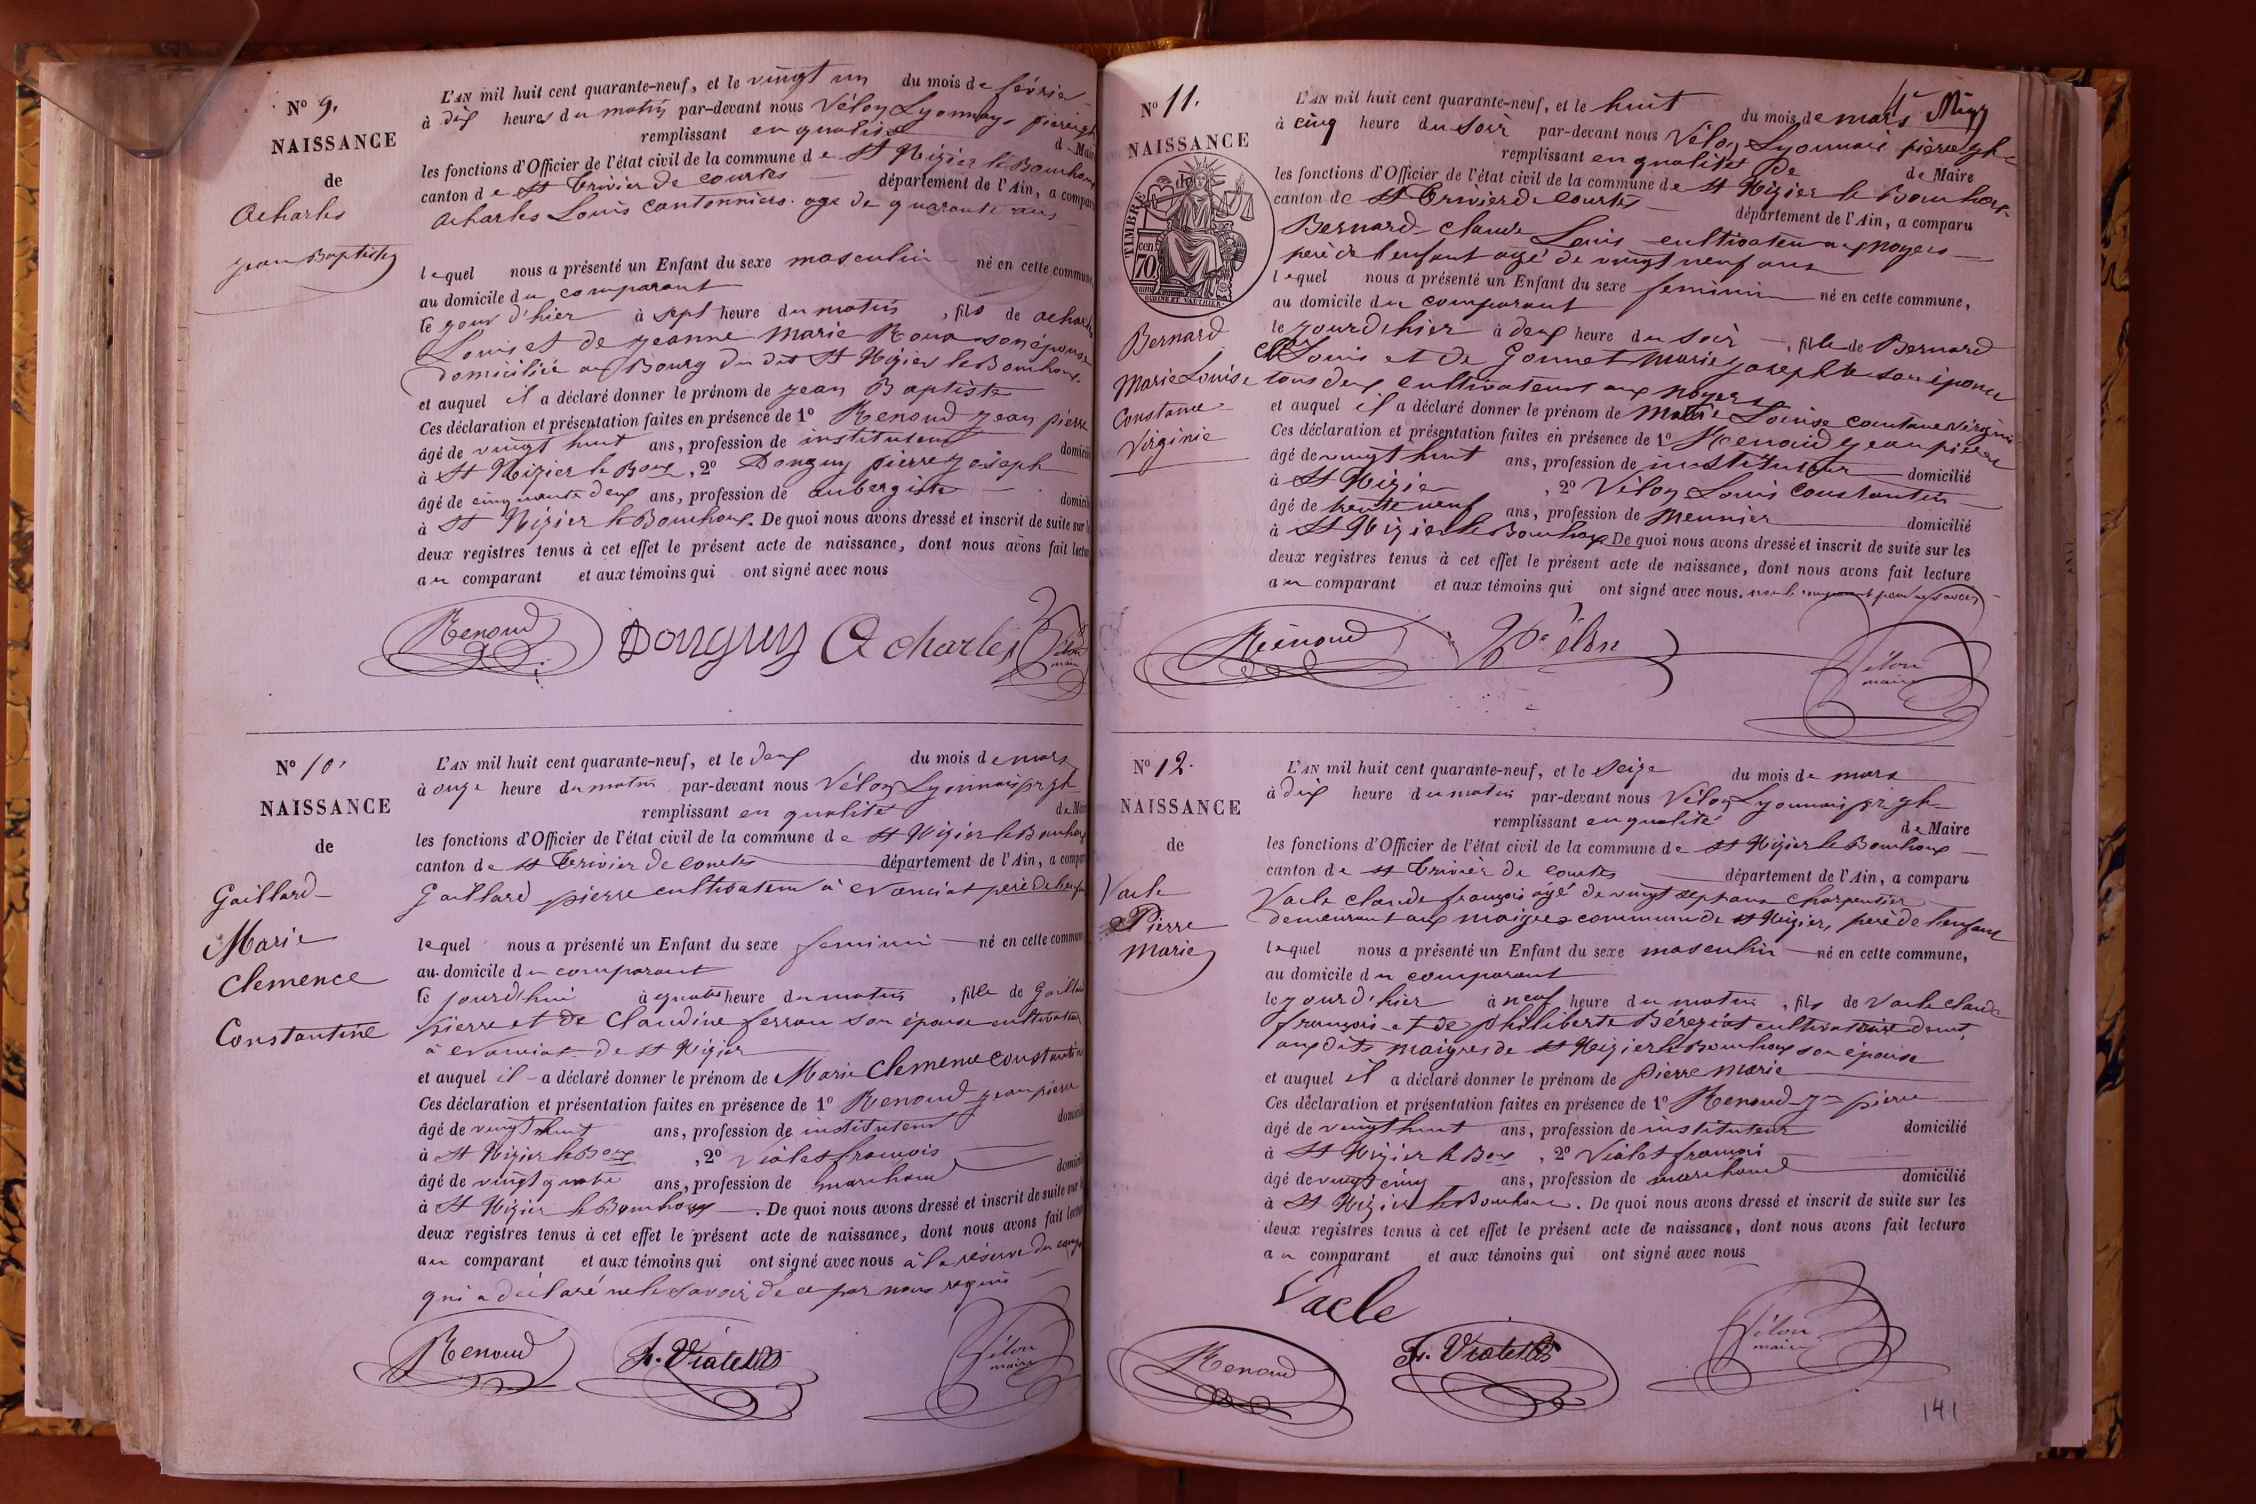 N.º 9.
NAISSANCE
de
Acharles
Jean Baptiste
L'AN mil huit cent quarante-neuf, et le vingt un du mois de février
à dix heures du matin par-devant nous Vélon Lyonnais pierre
remplissant en qualité d Maire
les fonctions d'Officier de l'état civil de la commune de St Nizier le Bouchoux
canton de St Trivier de courtes département de l'Ain, a comparu
Acharles Louis cantonnier age de quarante ans
lequel nous a présenté un Enfant du sexe masculin né en cette commune
au domicile du comparant
le jour d'hier à sept heure du matin, fils de acharles
Louis et de jeanne Marie son épouse
domiciliée au Bourg du dit St Nizier le Bouchoux
et auquel il a déclaré donner le prénom de jean Baptiste
Ces déclaration et présentation faites en présence de 1º Renoud jean pierre
âgé de vingt huit ans, profession de instituteur domicilié
à St Nizier le Boux, 2º Donguy pierre joseph
âgé de cinquante deux ans, profession de aubergiste domicilié
à St Nizier le Bouchoux. De quoi nous avons dressé et inscrit de suite sur les
deux registres tenus à cet effet le présent acte de naissance, dont nous avons fait lecture
au comparant et aux témoins qui ont signé avec nous
Renoud Donguy Acharles Vélon maire
Nº 10.
NAISSANCE
de
Gaillard
Marie
Clemence
Constantine
L'AN mil huit cent quarante-neuf, et le deux du mois de mars
à onze heure du matin par-devant nous Vélon Lyonnais
remplissant en qualité de Maire
les fonctions d'Officier de l'état civil de la commune de St Nizier le Bouchoux
canton de St Trivier de Courtes département de l'Ain, a comparu
Gaillard pierre cultivateur à evanciat père de l'enfant
lequel nous a présenté un Enfant du sexe feminin né en cette commune
au domicile du comparant
le jourd'hui à quatre heure du matin, fille de Gaillard
pierre et de Claudine ferrou son épouse cultivateur
à evanciat de St Nizier
et auquel il a déclaré donner le prénom de Marie Clemence constantine
Ces déclaration et présentation faites en présence de 1º Renoud jean pierre
âgé de vingt huit ans, profession de instituteur domicilié
à St Nizier le Boux, 2º Violet françois
âgé de vingt quatre ans, profession de marchand domicilié
à St Nizier le Bouchoux. De quoi nous avons dressé et inscrit de suite sur les
deux registres tenus à cet effet le présent acte de naissance, dont nous avons fait lecture
au comparant et aux témoins qui ont signé avec nous à la réserve du
qui a déclaré ne le savoir de ce par nous requis
Renoud F. Violet Vélon maire
Nº 11.
NAISSANCE
de
TIMBRE
cen 70
Bernard
Marie Louise
Constance
Virginie
L'AN mil huit cent quarante-neuf, et le huit du mois de mars
à cinq heure du soir par-devant nous Vélon Lyonnais pierre
remplissant en qualité de de Maire
les fonctions d'Officier de l'état civil de la commune de St Nizier le Bouchoux
canton de St Trivier de Courtes département de l'Ain, a comparu
Bernard claude Louis cultivateur aux noyers
père de l'enfant agé de vingt neuf ans
lequel nous a présenté un Enfant du sexe feminin né en cette commune,
au domicile du comparant
le jourd'hier à deux heure du soir, fille de Bernard
cl Louis et de Gonnet Marie josephte son épouse
tous deux cultivateurs aux noyers
et auquel il a déclaré donner le prénom de Marie Louise constance virginie
Ces déclaration et présentation faites en présence de 1º Renoud jean pierre
âgé de vingt huit ans, profession de instituteur domicilié
à St Nizier, 2º Vélon Louis Constantin
âgé de trente neuf ans, profession de meunier domicilié
à St Nizier le Bouchoux De quoi nous avons dressé et inscrit de suite sur les
deux registres tenus à cet effet le présent acte de naissance, dont nous avons fait lecture
au comparant et aux témoins qui ont signé avec nous. non le comparant pour ne savoir
Renoud Vélon Vélon maire
Nº 12.
NAISSANCE
de
Vacle
Pierre
Marie
L'AN mil huit cent quarante-neuf, et le seize du mois de mars
à dix heure du matin par-devant nous Vélon Lyonnais
remplissant en qualité de Maire
les fonctions d'Officier de l'état civil de la commune de St Nizier le Bouchoux
canton de St Trivier de courtes département de l'Ain, a comparu
Vacle claude françois agé de vingt sept ans charpentier
demeurant aux maigres commune de St Nizier, père de l'enfant
lequel nous a présenté un Enfant du sexe masculin né en cette commune,
au domicile du comparant
le jour d'hier à neuf heure du matin, fils de Vacle claude
françois et de philiberte Béreziat cultivatrice demt
aux dits maigres de St Nizier le Bouchoux son épouse
et auquel il a déclaré donner le prénom de pierre marie
Ces déclaration et présentation faites en présence de 1º Renoud jn pierre
âgé de vingt huit ans, profession de instituteur domicilié
à St Nizier le Boux, 2º Violet françois
âgé de vingt cinq ans, profession de marchand domicilié
à St Nizier le Bouchoux. De quoi nous avons dressé et inscrit de suite sur les
deux registres tenus à cet effet le présent acte de naissance, dont nous avons fait lecture
au comparant et aux témoins qui ont signé avec nous
Vacle
Renoud F. Violet Vélon maire
141